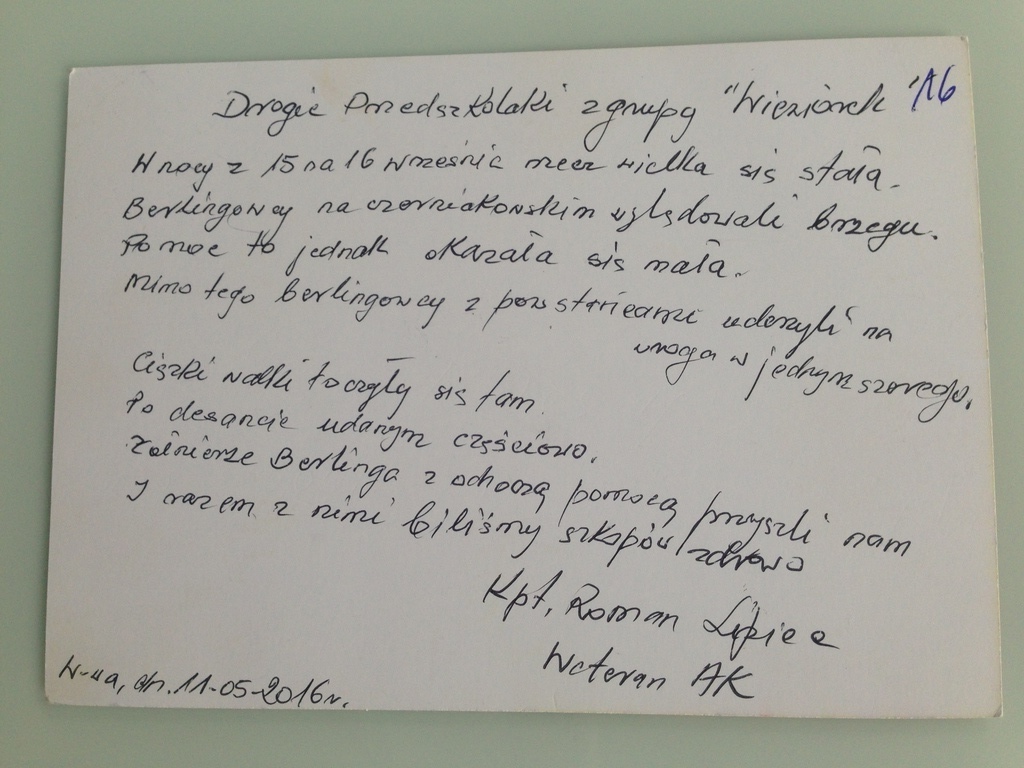 Drogie Przedszkolaki z grupy "Wieziórek" 16
W nocy z 15 na 16 września rzecz wielka się stała.
Berlingowcy na czerniakowskim wylądowali brzegu.
Pomoc to jednak okazała się mała.
Mimo tego berlingowcy z powstańcami uderzyli na
wroga w jednym szeregu.
Ciężki walki toczyły się tam
Po desancie udanym częściowo.
Żołnierze Berlinga z ochoczą pomocą przyszli nam
I razem z nimi biliśmy szkopów zdrowo
Kpt. Roman Lipiec
Weteran AK
W-wa, dn. 11-05-2016r.